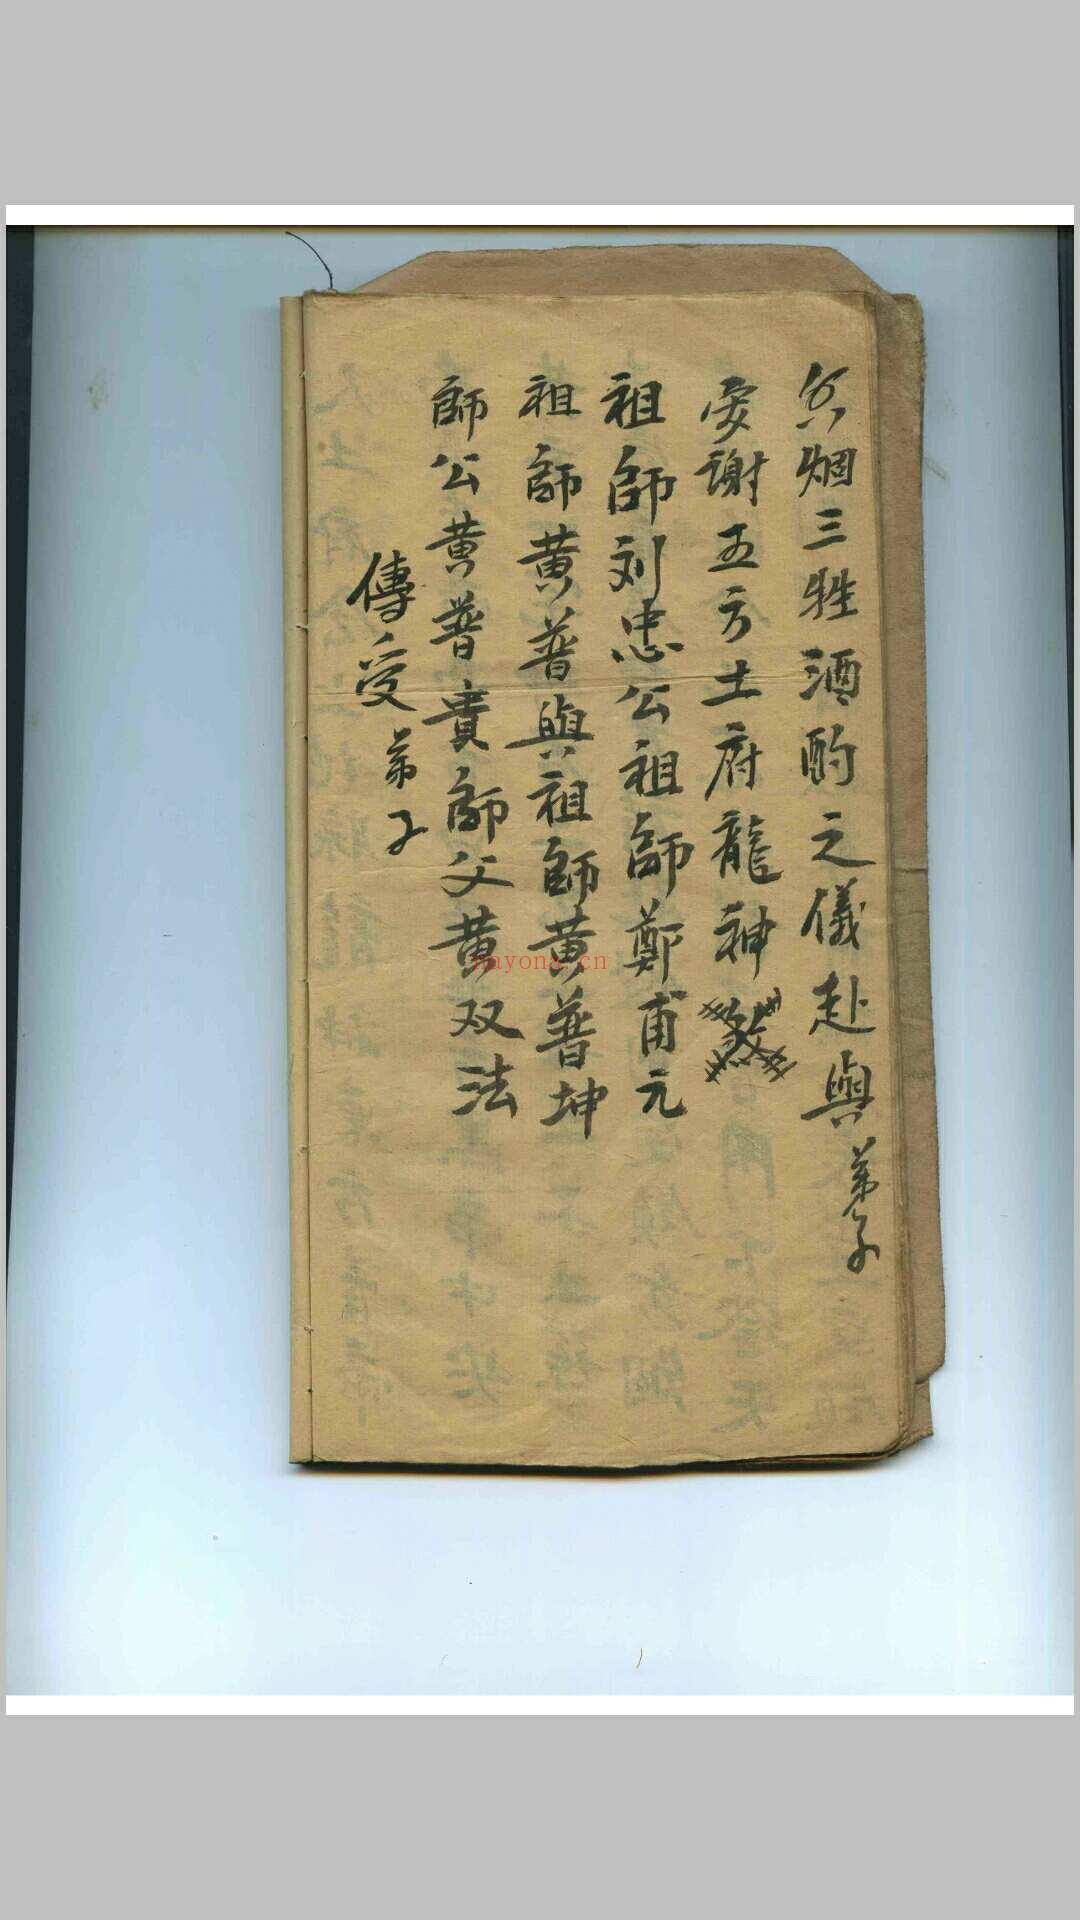 烟三牲酒酌之儀赴與弟子
安謝五方土府龍神
祖師刘忠公祖師鄭甫元
祖師黄普與祖師黄普坤
師公黄普貴師父黄双法
傳受弟子
nayona.cn